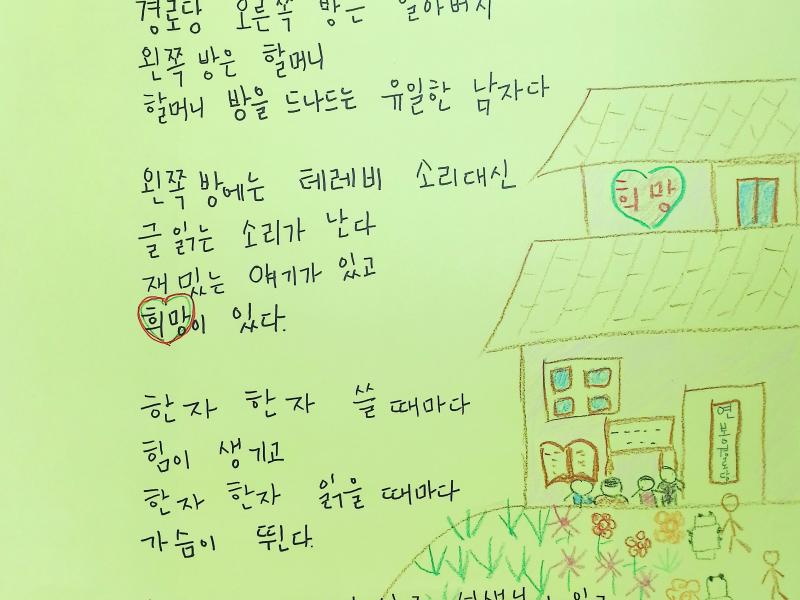 경로당 오른쪽 방은 할아버지
왼쪽 방은 할머니
할머니 방을 드나드는 유일한 남자다
왼쪽 방에는 테레비 소리대신
글 읽는 소리가 난다
재밌는 얘기가 있고
희망이 있다.
한자 한자 쓸 때마다
힘이 생기고
한자 한자 읽을 때마다
가슴이 뛴다.
희망
연봉경로당